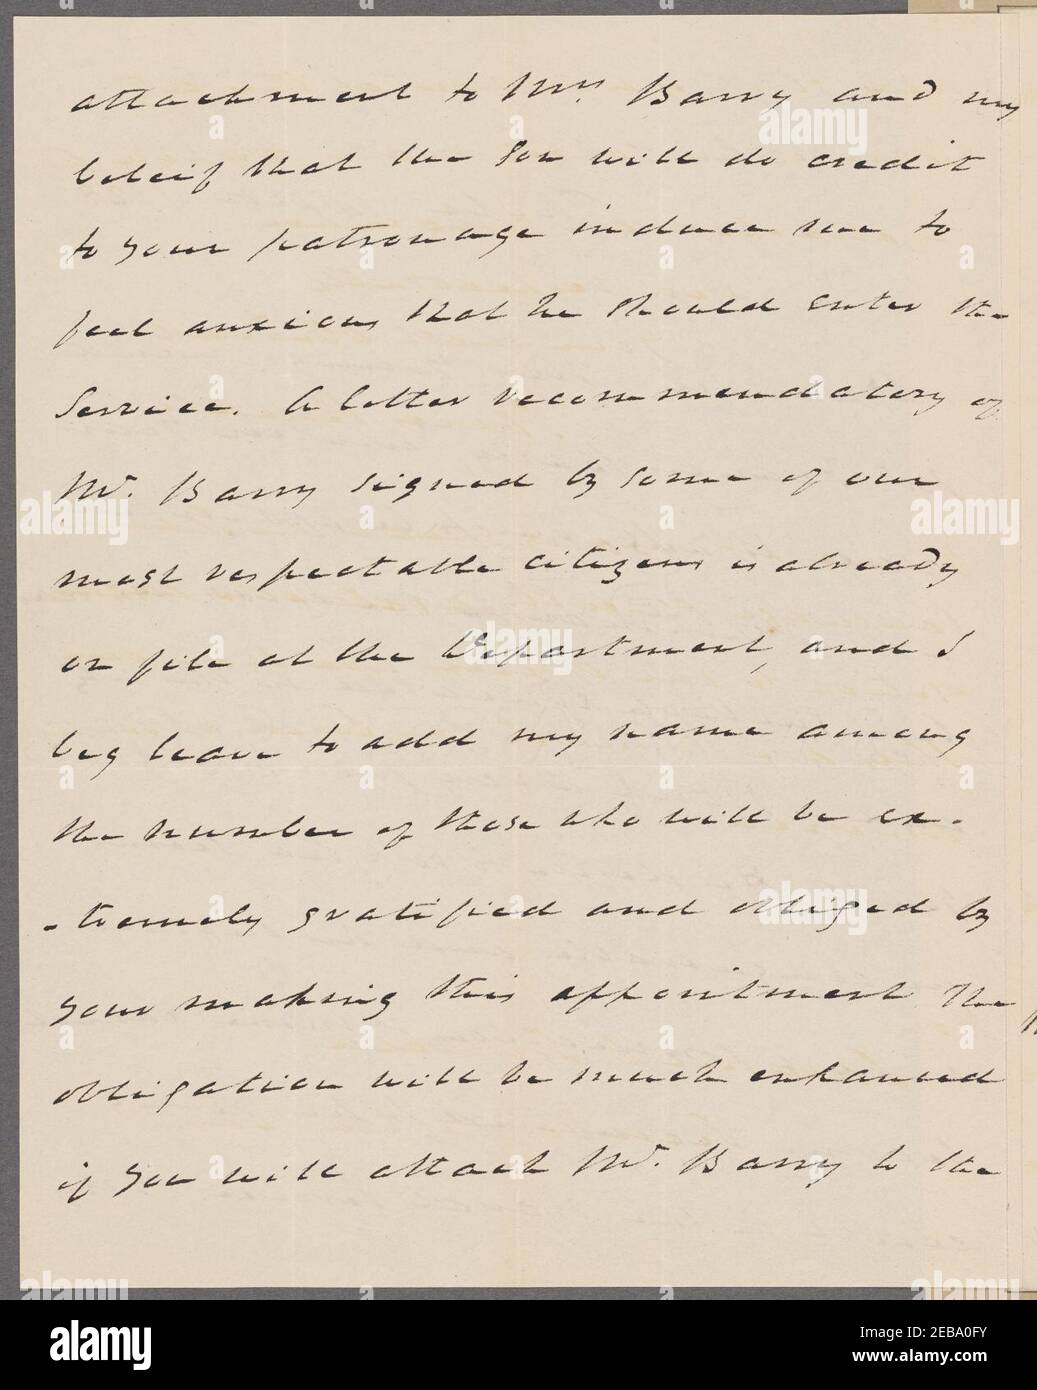 attachment to Mrs Barry and my
beleif that the son will do credit
to your patronage induce me to
feel anxious that he should enter the
Service. A letter recommendatory of
Mr. Barry signed by some of our
most respectable citizens is already
on file at the Department, and I
beg leave to add my name among
the number of those who will be ex-
-tremely gratified and obliged by
your making this appointment The
obligation will be much enhanced
if you will attach Mr. Barry to the
alamy
Image ID: 2EBA0FY
www.alamy.com